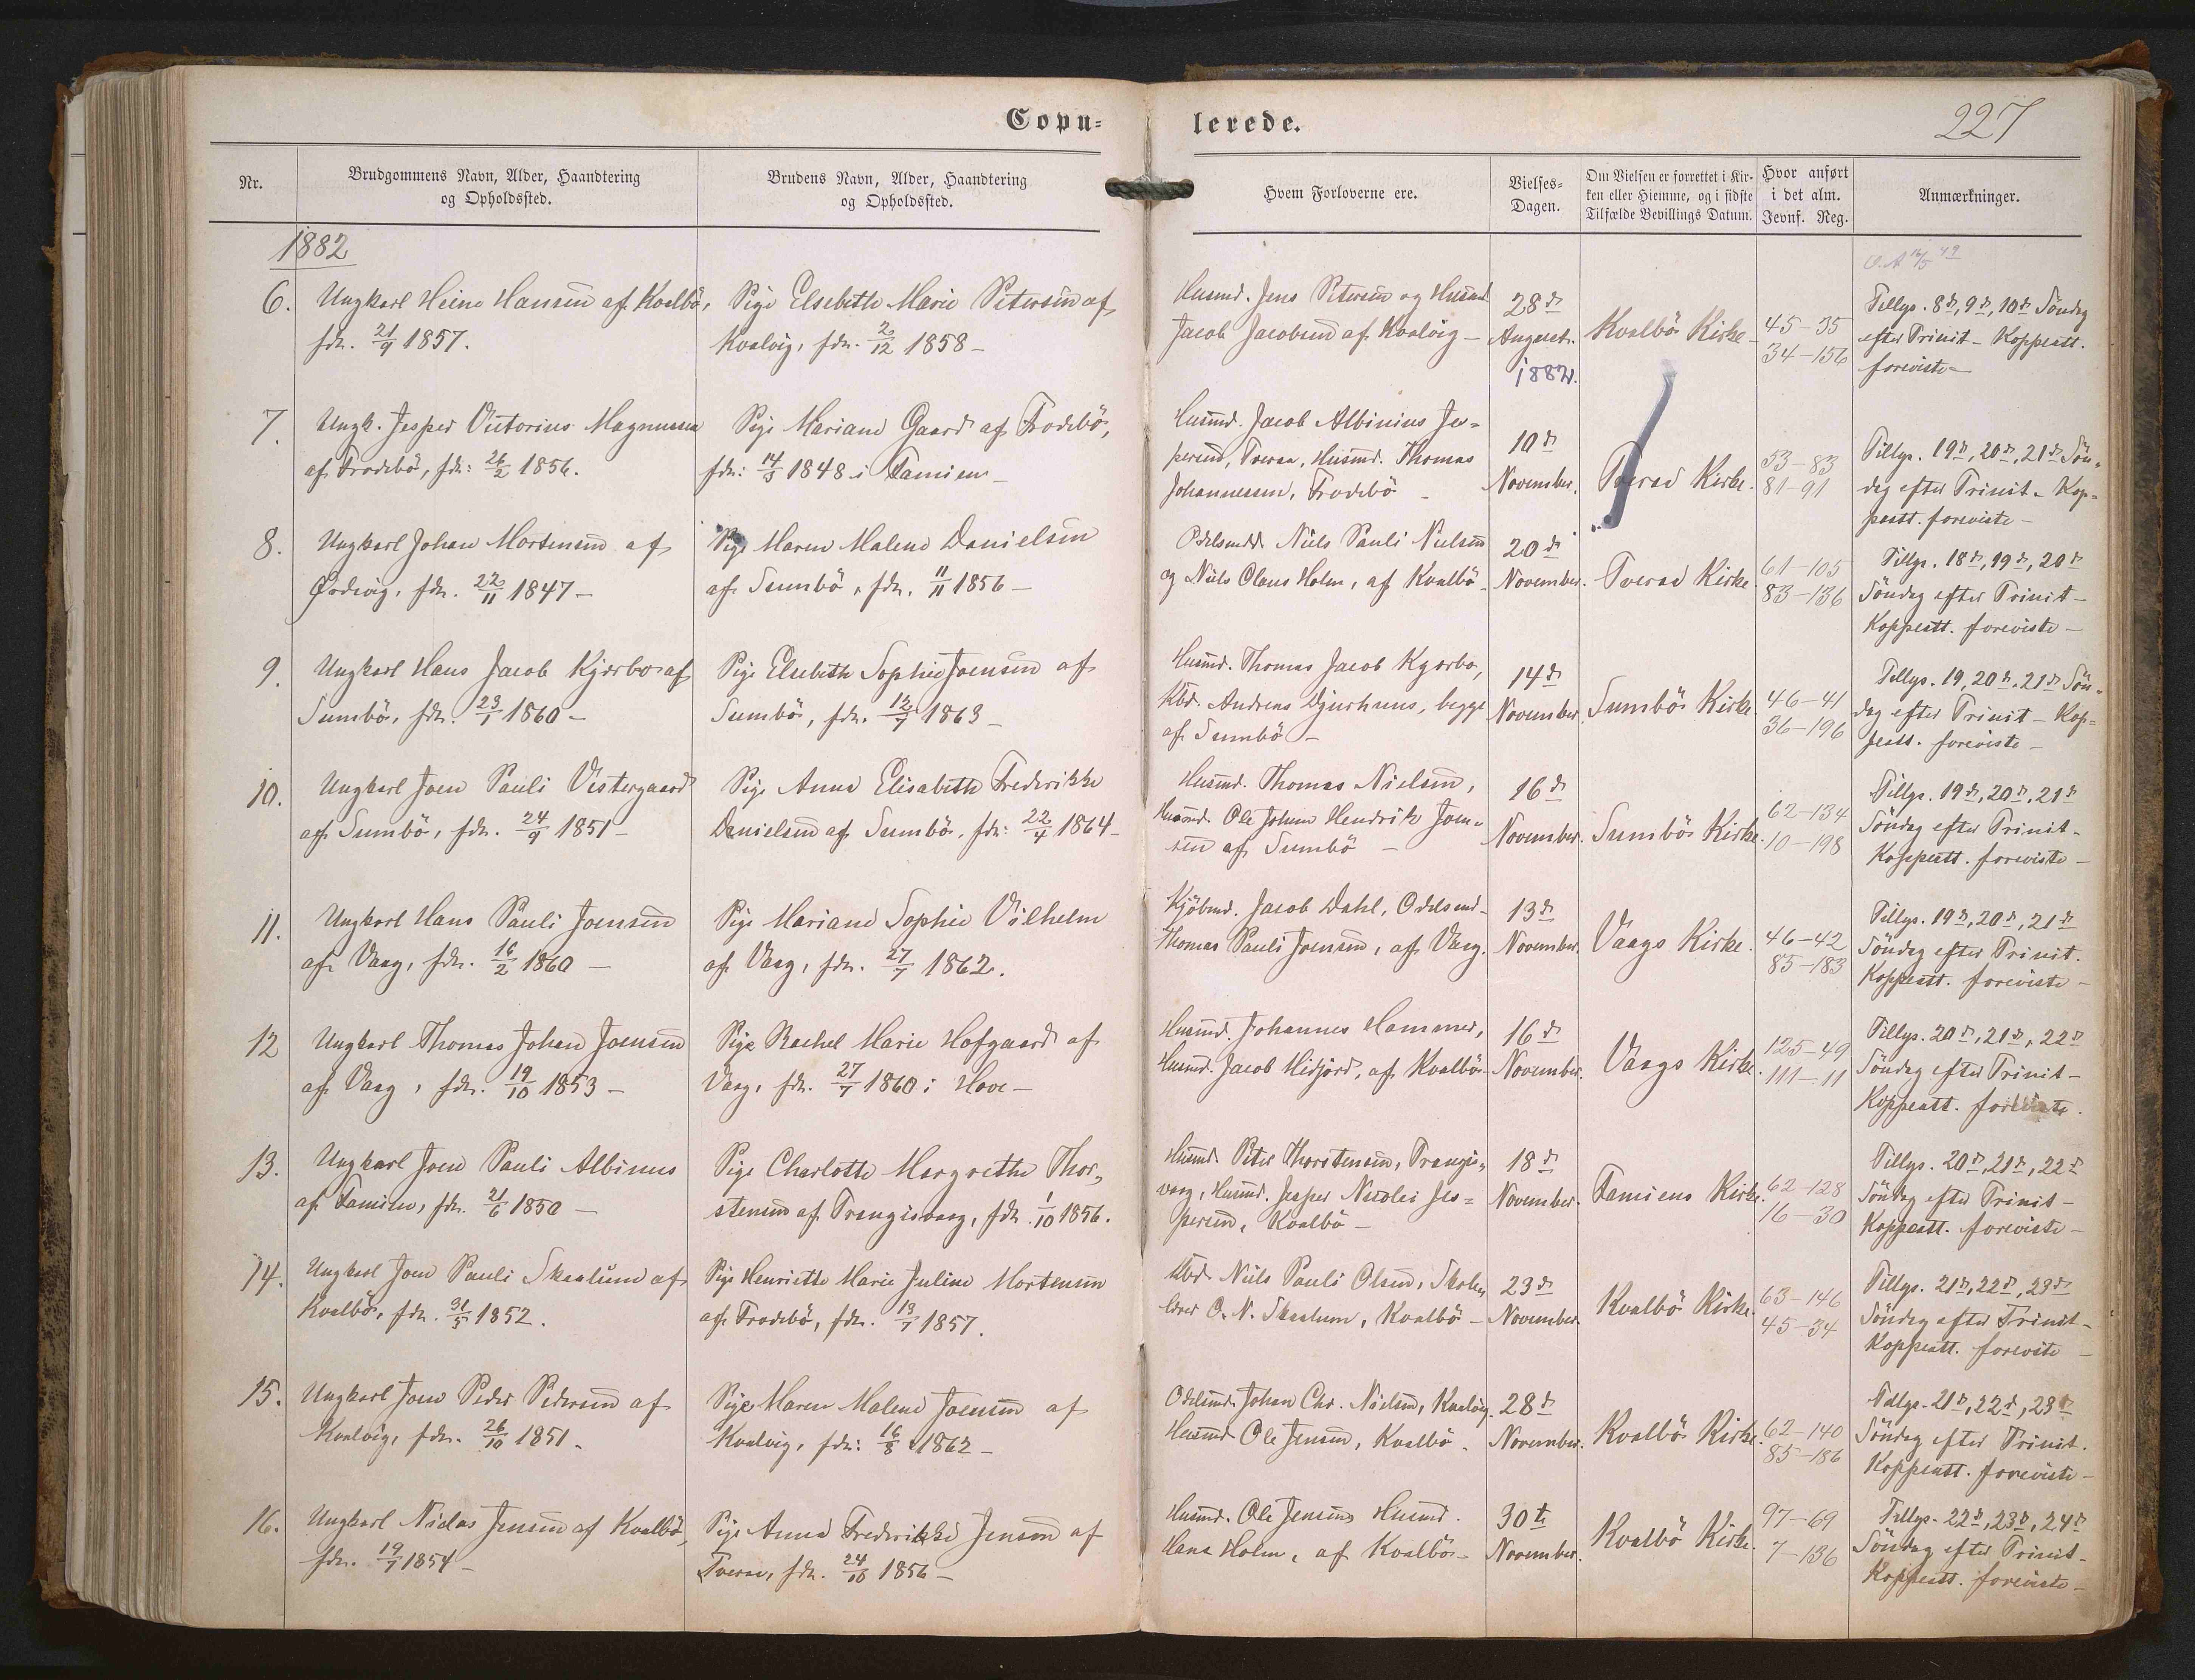 Copu=
lerede.
227
Nr.
Brudgommens Navn, Alder, Haandtering
og Opholdssted.
Brudens Navn, Alder, Haandtering
og Opholdssted.
Hvem Forloverne ere.
Vielses=
Dagen.
Om Vielsen er forrettet i Kir-
ken eller Hiemme, og i sidste
Tilfælde Bevillings Datum.
Hvor anført
i det alm.
Jevnf. Reg.
Anmærkninger.
1882
6.
Ungkarl Heine Hansen af Kvalbö,
fdt. 21/9 1857.
Pige Elsebeth Marie Petersen af
Kvalvig, fdt. 2/12 1858 –
Husmd. Jens Petersen og Husmd.
Jacob Jacobsen af Kvalvig –
28d
August.
1882.
Kvalbö Kirke –
45–35
34–156
Tillys. 8d, 9d, 10d Söndag
efter Trinit – Koppeatt.
foreviste –
7.
Ungk. Jesper Victorius Magnussen
af Frodebö, fdt: 26/2 1856.
Pige Mariane Gaard af Frodebö,
fdt: 14/3 1848 i Famien –
Husmd. Jacob Albinius Jes=
persen, Tveraa, Husmd. Thomas
Johannessen, Frodebö –
10d
November.
Tveraa Kirke.
53–83
81–91
Tillys. 19d, 20d, 21d Sön=
dag efter Trinit – Kop=
peatt. foreviste –
8.
Ungkarl Johan Mortensen af
Ördevig, fdt. 22/11 1847 –
Pige Maren Malene Danielsen
af Sumbö, fdt. 11/11 1856 –
Odelsmd. Niels Pauli Nielsen
og Niels Claus Holm, af Kvalbö –
20d
November.
Tveraa Kirke
61–105
83–136
Tillys. 18d, 19d, 20d
Söndag efter Trinit –
Koppeatt. foreviste –
9.
Ungkarl Hans Jacob Kjærbo af
Sumbö, fdt. 23/1 1860 –
Pige Elsebeth Sophie Joensen af
Sumbö, fdt. 12/7 1863 –
Husmd. Thomas Jacob Kjærbo,
Kbd. Andreas Djurhuus, begge
af Sumbö –
14d
November.
Sumbö Kirke.
46–41
36–196
Tillys. 19, 20d, 21d Sön=
dag efter Trinit – Kop=
peatt. foreviste –
10.
Ungkarl Joen Pauli Vestergaard
af Sumbö, fdt. 24/9 1851 –
Pige Anna Elisabeth Frederikke
Danielsen af Sumbö, fdt: 22/4 1864 –
Husmd. Thomas Nielsen,
Husmd. Ole Johan Hendrik Joen=
sen af Sumbö –
16d
November.
Sumbö Kirke.
62–134
10–198
Tillys. 19d, 20d, 21d
Söndag efter Trinit –
Koppeatt. foreviste –
11.
Ungkarl Hans Pauli Joensen
af Vaag, fdt. 16/2 1860 –
Pige Mariane Sophie Vilhelm
af Vaag, fdt. 27/7 1862.
Kjöbmd. Jacob Dahl, Odelsmd.
Thomas Pauli Joensen, af Vaag.
13d
November.
Vaags Kirke.
46–42
85–183
Tillys. 19d, 20d, 21d
Söndag efter Trinit.
Koppeatt. foreviste –
12
Ungkarl Thomas Johan Joensen
af Vaag, fdt. 19/10 1853 –
Pige Rachel Marie Hofgaard af
Vaag, fdt. 27/7 1860 i Hove –
Husmd. Johannes Hammer,
Husmd. Jacob Midjord, af Kvalbö –
16d
November.
Vaags Kirke.
125–49
111–11
Tillys. 20d, 21d, 22d
Söndag efter Trinit –
Koppeatt. foreviste.
13.
Ungkarl Joen Pauli Albinus
af Famien, fdt. 21/6 1850 –
Pige Charlotte Margrethe Thor=
stensen af Trangisvaag, fdt. 1/10 1856.
Husmd. Peter Thorstensen, Trangis=
vaag, Husmd. Jesper Nicolai Jes=
persen, Kvalbö –
18d
November.
Famiens Kirke.
62–128
16–30
Tillys. 20d, 21d, 22d
Söndag efter Trinit –
Koppeatt. foreviste –
14.
Ungkarl Joen Pauli Skaalum af
Kvalbö, fdt. 31/5 1852.
Pige Henriette Marie Juline Mortensen
af Frodebö, fdt. 13/7 1857.
Kbd. Niels Pauli Olsen, Skole=
lærer O. N. Skaalum, Kvalbö –
23d
November.
Kvalbö Kirke.
63–146
45–34
Tillys. 21d, 22d, 23d
Söndag efter Trinit –
Koppeatt. foreviste –
15.
Ungkarl Joen Peder Pedersen af
Kvalvig, fdt. 26/10 1851.
Pige Maren Malene Joensen af
Kvalvig, fdt: 16/8 1862 –
Odelsmd. Johan Chr. Nielsen, Kvalvig.
Husmd. Ole Jensen, Kvalbö –
28d
November.
Kvalbö Kirke.
62–140
85–186
Tillys. 21d, 22d, 23d
Söndag efter Trinit.
Koppeatt. foreviste –
16.
Ungkarl Niclas Jensen af Kvalbö,
fdt. 19/7 1854 –
Pige Anna Frederikke Jensen af
Tveraa, fdt. 24/10 1856 –
Husmd. Ole Jensen, Husmd.
Hans Holm, af Kvalbö –
30t
November.
Kvalbö Kirke.
97–69
7–136
Tillys. 22d, 23d, 24d
Söndag efter Trinit –
Koppeatt. foreviste –